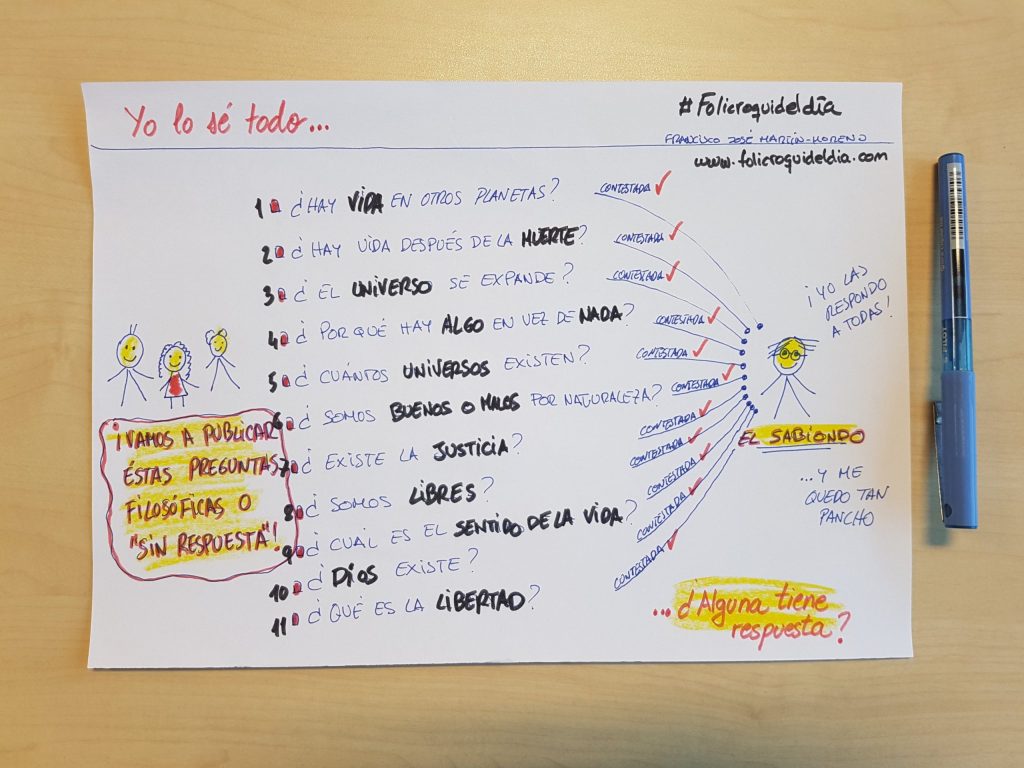 Yo lo sé todo...
#Folicroquideldía
FRANCISCO JOSÉ MARTÍN-MORENO
www.folicroquideldia.com
1 ¿HAY VIDA EN OTROS PLANETAS?
CONTESTADA
2 ¿HAY VIDA DESPUÉS DE LA MUERTE?
CONTESTADA
3 ¿EL UNIVERSO SE EXPANDE?
CONTESTADA
4 ¿POR QUÉ HAY ALGO EN VEZ DE NADA?
CONTESTADA
5 ¿CUÁNTOS UNIVERSOS EXISTEN?
CONTESTADA
6 ¿SOMOS BUENOS O MALOS POR NATURALEZA?
CONTESTADA
7 ¿EXISTE LA JUSTICIA?
CONTESTADA
8 ¿SOMOS LIBRES?
CONTESTADA
9 ¿CUÁL ES EL SENTIDO DE LA VIDA?
CONTESTADA
10 ¿DIOS EXISTE?
CONTESTADA
11 ¿QUÉ ES LA LIBERTAD?
CONTESTADA
¡VAMOS A PUBLICAR
ÉSTAS PREGUNTAS
FILOSÓFICAS O
"SIN RESPUESTA"!
¡YO LAS
RESPONDO
A TODAS!
EL SABIONDO
...Y ME
QUEDO TAN
PANCHO
...¿Alguna tiene
respuesta?
PILOT